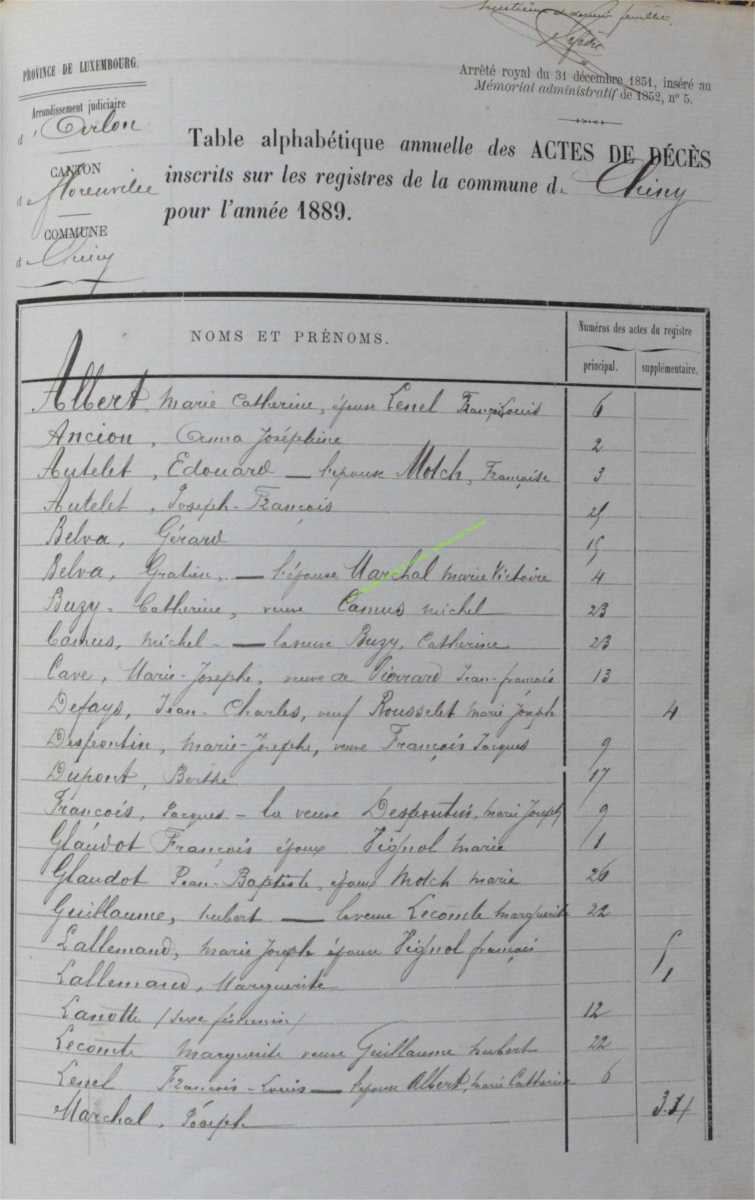 dernier feuillet.
PROVINCE DE LUXEMBOURG.
Arrondissement judiciaire
d'Arlon
CANTON
de Florenville
COMMUNE
de Chiny
Arrêté royal du 31 décembre 1851, inséré au
Mémorial administratif de 1852, n° 5.
Table alphabétique annuelle des ACTES DE DÉCÈS
inscrits sur les registres de la commune de Chiny
pour l'année 1889.
NOMS ET PRÉNOMS.
Numéros des actes du registre
principal. supplémentaire.
Albert, Marie Catherine, épouse Lenel Franç. Louis 6
Ancion, Anna Joséphine 2
Autelet, Edouard — l'épouse Motch, Françoise 3
Autelet, Joseph-François
Belva, Gérard 15
Belva, Gratien, — l'épouse Marchal Marie Victoire 4
Buzy, Catherine, veuve Camus Michel 23
Camus, Michel — la veuve Buzy, Catherine 23
Cave, Marie-Josephe, veuve de Piovrard Jean-françois 13
Defays, Jean-Charles, veuf Rousselet Marie Joseph 4
Despontin, Marie-Josephe, veuve François Jacques 9
Dupont, Berthe 17
François, Jacques - la veuve Despontin, Marie Joseph 9
Glaudot François époux Vignol Marie 1
Glaudot Jean-Baptiste, époux Motch Marie 26
Guillaume, hubert — la veuve Lecomte Marguerite 22
Lallemand, Marie Joseph épouse Vignol françois 5
Lallemand, Marguerite 1
Lanotte (sexe féminin) 12
Lecomte Marguerite veuve Guillaume hubert 22
Lenel François-Louis — l'épouse Albert, Marie Catherine 6
Marchal, Joseph